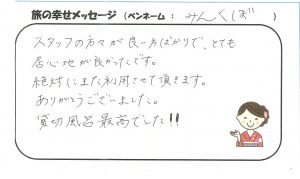 旅の幸せメッセージ（ペンネーム：みんくしぽ）
スタッフの方々が良い方ばかりで、とても
居心地が良かったです。
絶対にまた利用させて頂きます。
ありがとうございました。
貸切風呂最高でした!!